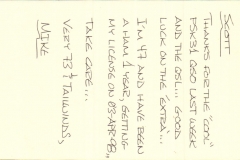 SCOTT
THANKS FOR THE "COOL"
PSK31 QSO LAST WEEK
AND THE QSL... GOOD
LUCK ON THE EXTRA...
I'M 47 AND HAVE BEEN
A HAM 1 YEAR, GETTING
MY LICENSE ON 03-APR-98.
TAKE CARE...
VERY 73 & TAILWINDS,
MIKE